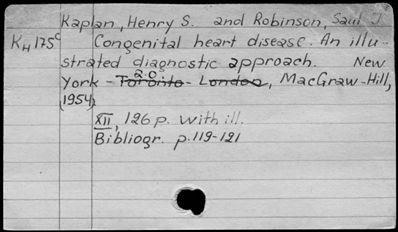 Kaplan, Henry S. and Robinson, Saul J.
K4175c Congenital heart disease. An illu-
strated diagnostic approach. New
York - Toronto - London, MacGraw-Hill,
(1954).
XII, 126 p. with ill.
Bibliogr. p.119-121